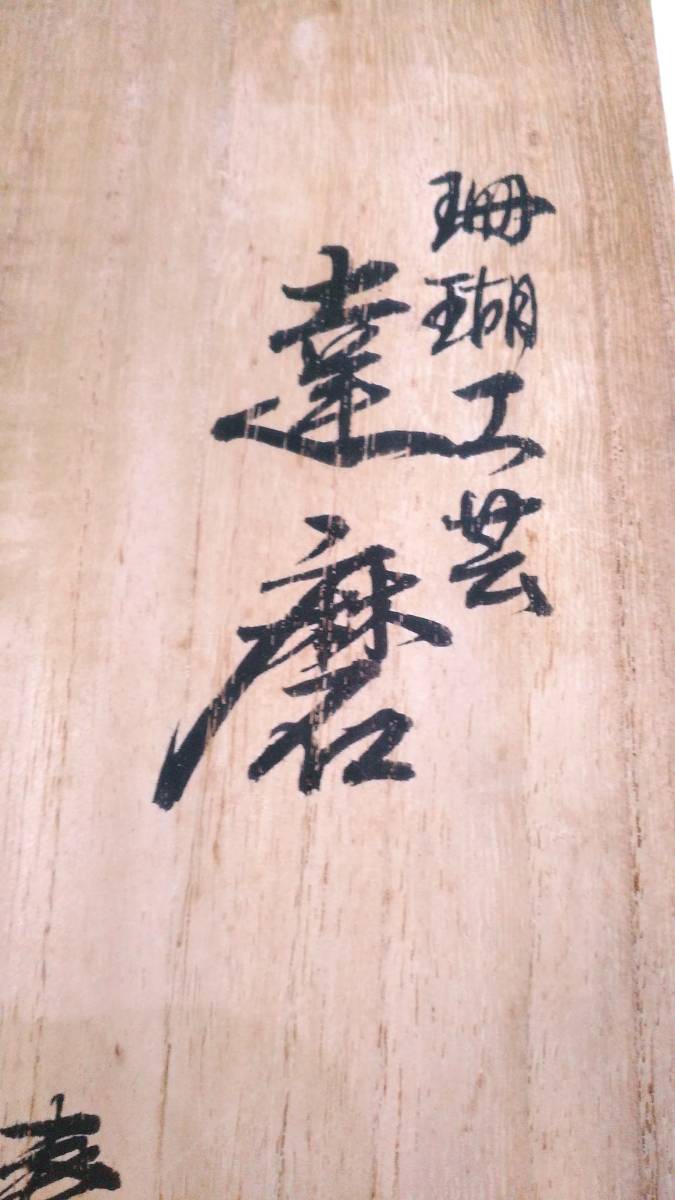 珊瑚工芸
達磨